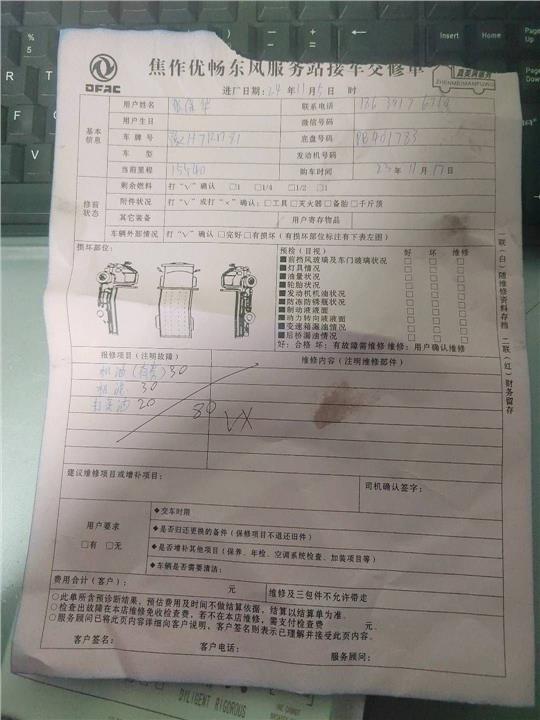 DFAC
焦作优畅东风服务站接车交修单
ZHENMEIMANFUWU
进厂日期：24年11月5日 时
基本信息
用户姓名 联系电话
用户生日 微信号码
车牌号 底盘号码
车型 发动机号
当前里程 15540 购车时间 23年11月17日
修前状态
剩余燃料 打“V”确认 □1 □1/4 □1/2 □1
附件状况 打“V”或打“×”确认：□工具□灭火器□备胎□千斤顶
其它装备 用户寄存物品
车辆外部情况 打“V”确认 □完好□有损坏（有损坏部位标注有下表左图）
损坏部位：
预检（目视） 好 坏 维修
■前挡风玻璃及车门玻璃状况 □ □ □
■灯具情况 □ □ □
■油量状况 □ □ □
■轮胎状况 □ □ □
■发动机机油状况 □ □ □
■防冻防锈瓶状况 □ □ □
■制动液液面 □ □ □
■动力转向液液面 □ □ □
■变速箱漏油情况 □ □ □
■后桥漏油情况 □ □ □
好：合格 坏：有故障需维修 维修：用户确认维修
报修项目（注明故障） 维修内容（注明维修部件）
机油 30
机滤 30
20
80 VX
建议维修项目或增补项目：
司机确认签字：
用户要求
□有 □无
◆交车时限
◆是否归还更换的备件（保修项目不退还旧件）
◆是否增补其他项目（保养、年检、空调系统检查、加装项目等）
◆车辆是否需要清洁：
费用合计（客户）： 元 维修及三包件不允许带走
○此单所含预诊断结果，预估费用及时间不做结算依据，结算以结算单为准。
○检查出故障在本店维修免收检查费，若不在本店维修，需支付检查费 元。
○服务顾问已将此页内容详细向客户说明，客户签名则表示已理解并接受此页内容。
客户签名： 客户电话： 服务顾问：
一联（白）随维修资料存档 二联（红）财务留存
DILIGENT RIGOROUS
Insert
Home